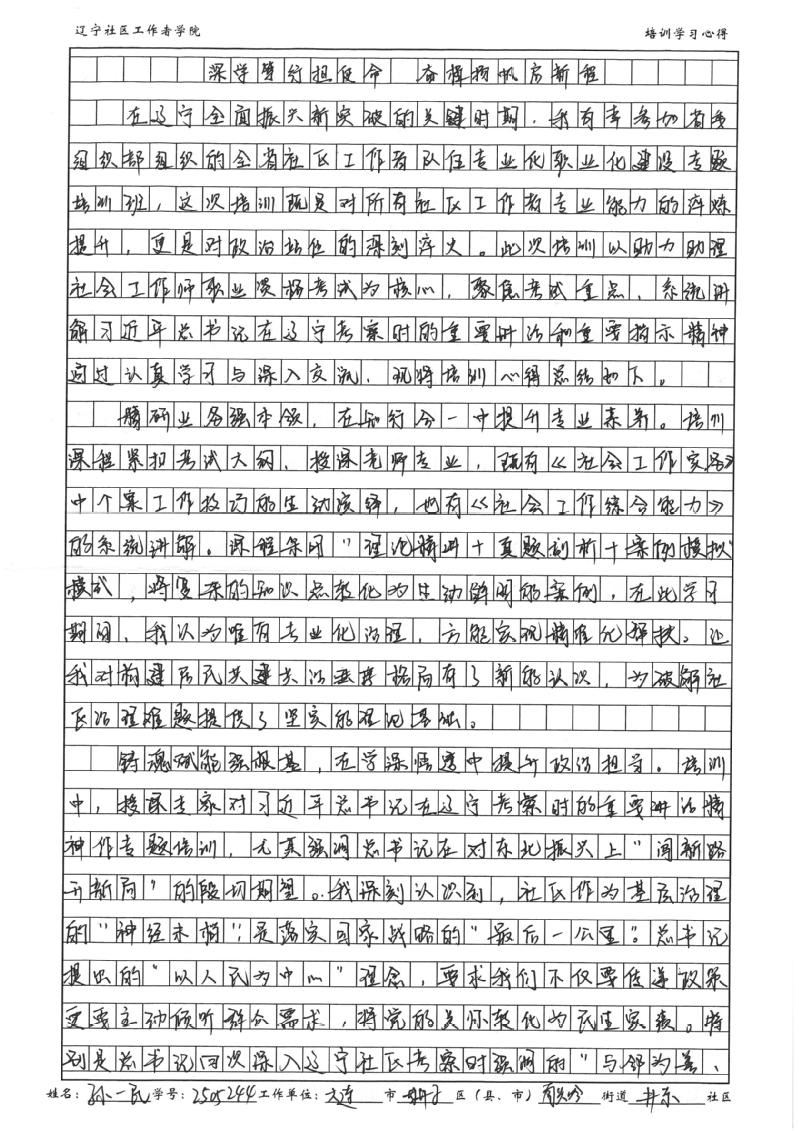 辽宁社区工作者学院 培训学习心得
深学笃行担使命 奋楫扬帆启新程
在辽宁全面振兴新突破的关键时期，我有幸参加省委
组织部组织的全省社区工作者队伍专业化职业化建设专题
培训班，这次培训既是对所有社区工作者专业能力的淬炼
提升，更是对政治站位的深刻淬火。此次培训以助力助理
社会工作师职业资格考试为核心，聚焦考试重点，系统讲
解习近平总书记在辽宁考察时的重要讲话和重要指示精神
通过认真学习与深入交流，现将培训心得总结如下。
精研业务强本领，在知行合一中提升专业素养。培训
课程紧扣考试大纲，授课老师专业，既有《社会工作实务》
中个案工作技巧的生动演绎，也有《社会工作综合能力》
的系统讲解。课程采用"理论精讲+真题剖析+案例模拟"
模式，将复杂的知识点转化为生动鲜明的案例，在此学习
期间，我认为唯有专业化治理，方能实现精准化帮扶。让
我对构建居民共建共治共享格局有了新的认识，为破解社
区治理难题提供了坚实的理论基础。
铸魂赋能强根基，在学深悟透中提升政治担当。培训
中，授课专家对习近平总书记在辽宁考察时的重要讲话精
神作专题培训，尤其强调总书记在对东北振兴上"闯新路
开新局"的殷切期望。我深刻认识到，社区作为基层治理
的"神经末梢"，是落实国家战略的"最后一公里"。总书记
提出的"以人民为中心"理念，要求我们不仅要传递政策
更要主动倾听群众需求，将党的关怀转化为民生实绩。特
别是总书记四次深入辽宁社区考察时强调的"与邻为善、
姓名：孙一民 学号：2505244 工作单位：大连 市 区（县、市） 街道 井东 社区